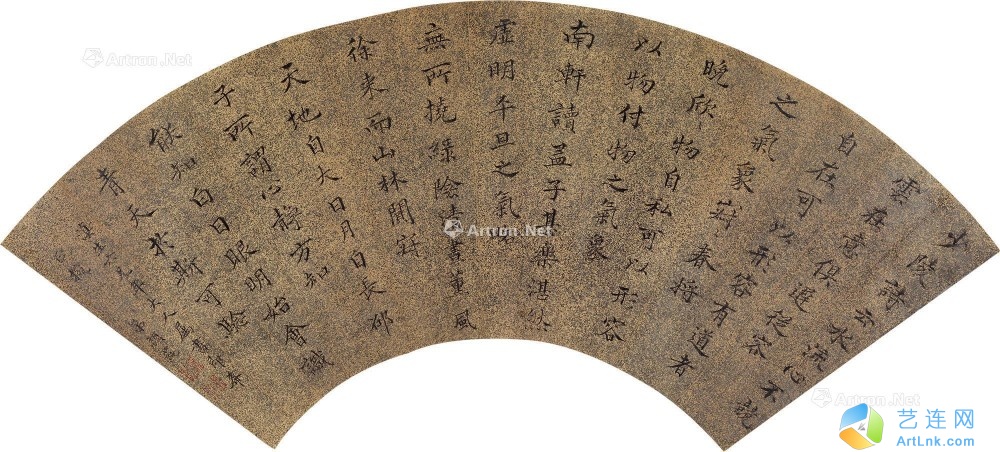 少陵詩云水流心不競
雲在意俱遲從容
自在可以形容有道者
之氣象寂〻春將
晚欣〻物自私可以形容
以物付物之氣象
南軒讀孟子甚樂湛然
虛明平旦之氣
無所撓綠陰清晝薰風
徐来而山林閒寂
天地自大日月自長邵
子所謂心静方知
白日眼明始會識
青天於斯可驗
大人屬書
Artron.Net
Artron.Net
Artron.Net
艺连网
ArtLnk.com